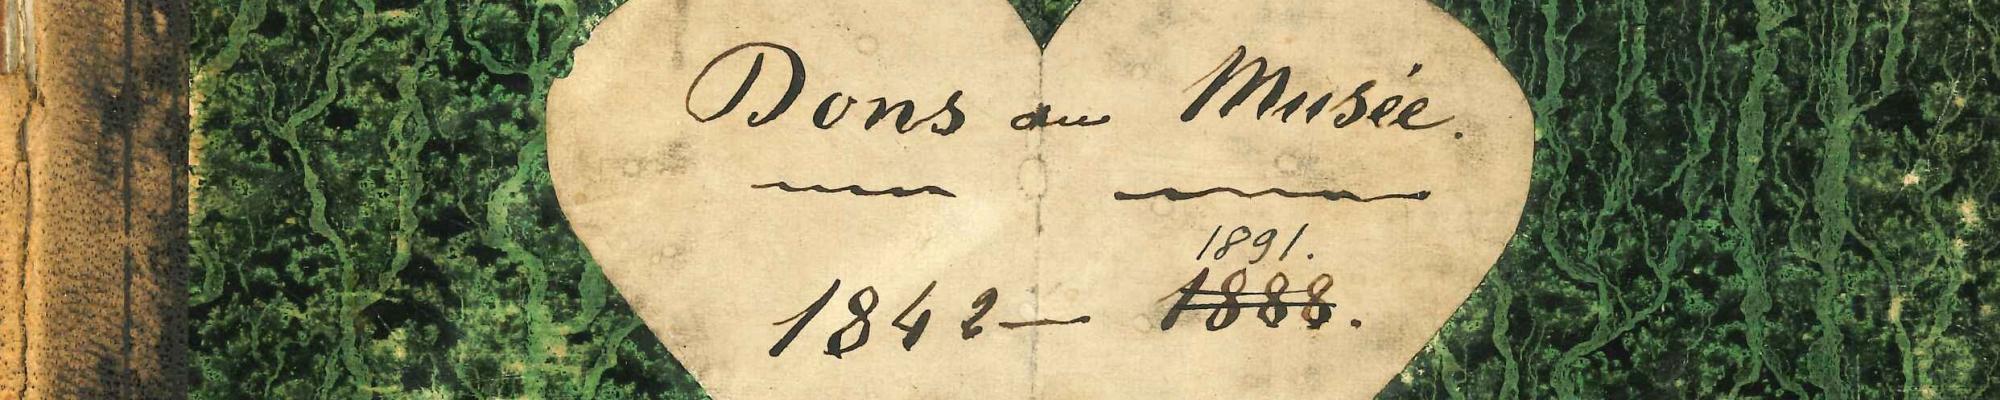 Dons au Musée.
1891.
1842 — 1888.